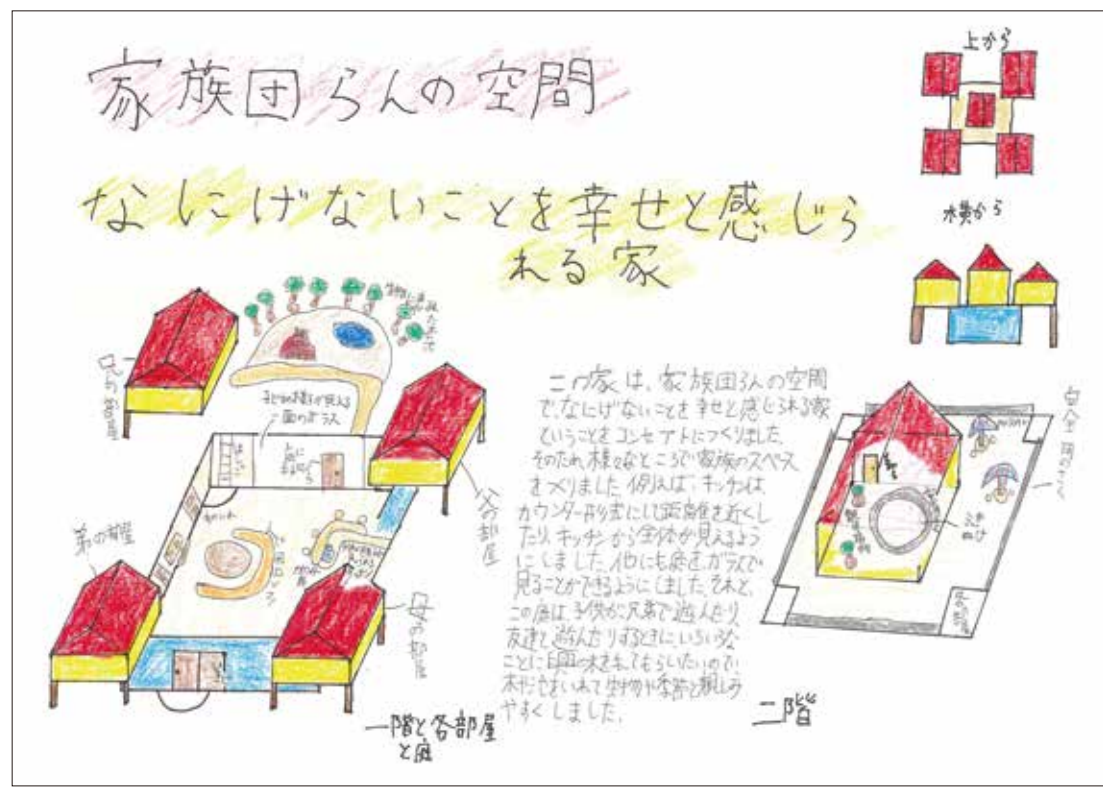 家族団らんの空間
なにげないことを幸せと感じら
れる家
上から
横から
兄の部屋
子どもの様子が見える
一面のガラス
父の部屋
弟の部屋
母の部屋
一階と各部屋
と庭
この家は、家族団らんの空間
で、なにげないことを幸せと感じられる家
ということをコンセプトにつくりました。
そのため、様々なところで家族のスペース
をつくりました。例えば、キッチンは、
カウンター形式にして距離を近くし
たり、キッチンから全体が見えるよう
にしました。他にも庭をガラスで
見ることができるようにしました。それと、
この庭は、子供が兄弟で遊んだり、
友達と遊んだりするときにいろいろな
ことに興味をもってもらいたいので、
木や池をいれて生物や季節と親しみ
やすくしました。
二階